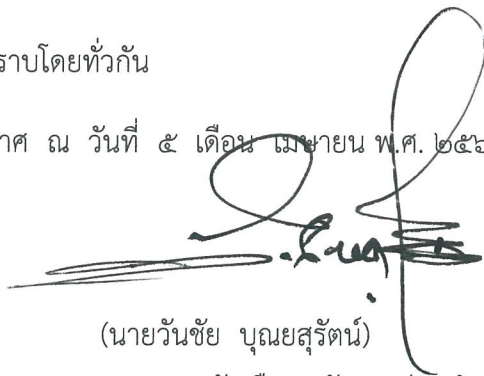 ราบโดยทั่วกัน
าศ ณ วันที่ ๕ เดือน เมษายน พ.ศ. ๒๕๖
(นายวันชัย บุณยสุรัตน์)